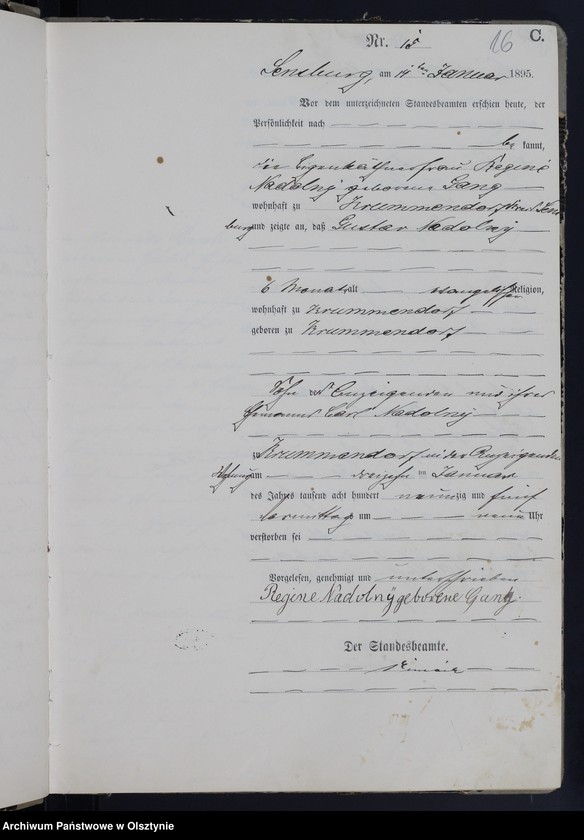 16 C.
Nr. 15
Sensburg, am 14ten Januar 1895.
Vor dem unterzeichneten Standesbeamten erschien heute, der
Persönlichkeit nach
be kannt,
die Eigenkäthnerfrau Regine
Nadolny geborene Gang
wohnhaft zu Krummendorf Kreis Sens
burg und zeigte an, daß Gustav Nadolny
6 Monate alt evangelischer Religion,
wohnhaft zu Krummendorf
geboren zu Krummendorf
Sohn der Anzeigenden und ihres
Ehemannes Carl Nadolny
zu Krummendorf in der Anzeigenden
Wohnung am dreizehn ten Januar
des Jahres tausend acht hundert neunzig und fünf
Vormittags um neun Uhr
verstorben sei
Vorgelesen, genehmigt und unterschrieben
Regine Nadolnÿ geborene Gang.
Der Standesbeamte.
Archiwum Państwowe w Olsztynie